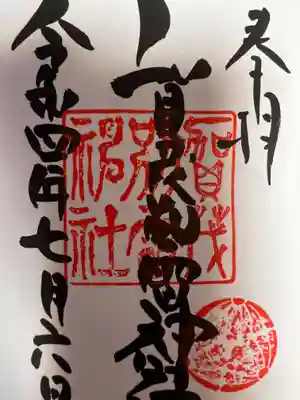 奉拝
賀茂別雷神社
令和四年七月六日
賀茂
別雷
神社